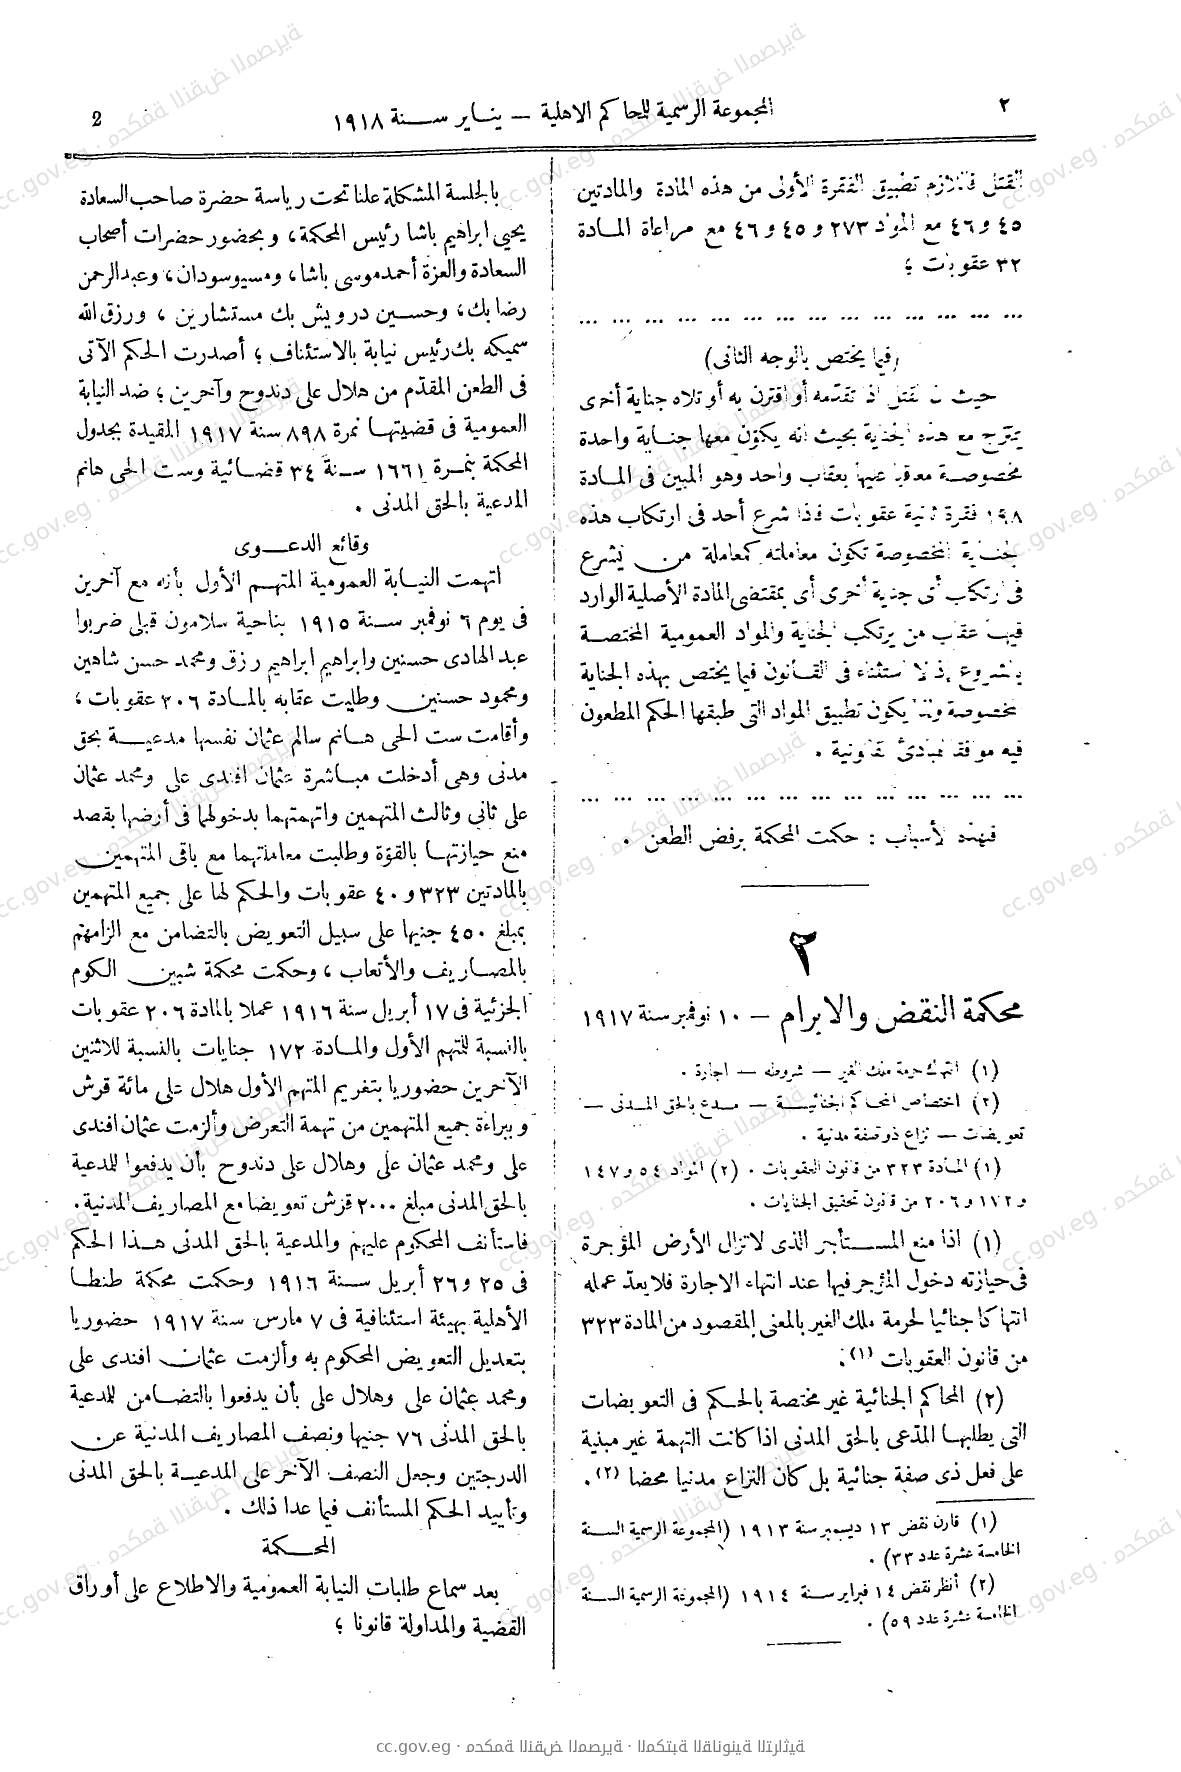 ٢
المجموعة الرسمية للمحاكم الاهلية — يناير سنة ١٩١٨
2
القتل فاللازم تطبيق الفقرة الأولى من هذه المادة والمادتين
٤٥ و ٤٦ مع المواد ٢٧٣ و ٤٥ و ٤٦ مع مراعاة المادة
٣٢ عقوبات ؛
... ... ... ... ... ... ... ... ... ... ... ... ... ...
(فيما يختص بالوجه الثانى)
حيث ان القتل اذا تقدمه أو اقترن به أو تلاه جناية أخرى
يمتزج مع هذه الجناية بحيث انه يكون معها جناية واحدة
مخصوصة معاقبا عليها بعقاب واحد وهو المبين فى المادة
١٩٨ فقرة ثانية عقوبات فاذا شرع أحد فى ارتكاب هذه
الجناية المخصوصة تكون معاملته كمعاملة من يشرع
فى ارتكاب أى جناية أخرى أى بمقتضى المادة الأصلية الوارد
فيها عقاب من يرتكب الجناية والمواد العمومية المختصة
بالشروع إذ لا استثناء فى القانون فيما يختص بهذه الجناية
المخصوصة ولذا يكون تطبيق المواد التى طبقها الحكم المطعون
فيه موافقا للمبادئ القانونية .
... ... ... ... ... ... ... ... ... ... ... ... ... ...
فبهذه الأسباب : حكمت المحكمة برفض الطعن .
٢
محكمة النقض والابرام — ١٠ نوفمبر سنة ١٩١٧
(١) انتهاك حرمة ملك الغير — شروطه — اجارة .
(٢) اختصاص المحاكم الجنائية — مدع بالحق المدنى —
تعويضات — نزاع ذو صفة مدنية .
(١) المادة ٣٢٣ من قانون العقوبات . (٢) المواد ٥٤ و ١٤٧
و ١٧٢ و ٢٠٦ من قانون تحقيق الجنايات .
(١) اذا منع المستأجر الذى لاتزال الأرض المؤجرة
فى حيازته دخول المؤجر فيها عند انتهاء الاجارة فلا يعد عمله
انتهاكا جنائيا لحرمة ملك الغير بالمعنى المقصود من المادة ٣٢٣
من قانون العقوبات (١).
(٢) المحاكم الجنائية غير مختصة بالحكم فى التعويضات
التى يطلبها المدعى بالحق المدنى اذا كانت التهمة غير مبنية
على فعل ذى صفة جنائية بل كان النزاع مدنيا محضا (٢).
(١) قارن نقض ١٣ ديسمبر سنة ١٩١٣ (المجموعة الرسمية السنة
الخامسة عشرة عدد ٣٣) .
(٢) أنظر نقض ١٤ فبراير سنة ١٩١٤ (المجموعة الرسمية السنة
الخامسة عشرة عدد ٥٩) .
بالجلسة المشكلة علنا تحت رياسة حضرة صاحب السعادة
يحيى ابراهيم باشا رئيس المحكمة، وبحضور حضرات أصحاب
السعادة والعزة أحمد موسى باشا، ومسيو سودان، وعبد الرحمن
رضا بك، وحسين درويش بك مستشارين ، ورزق الله
سميكه بك رئيس نيابة بالاستئناف ؛ أصدرت الحكم الآتى
فى الطعن المقدم من هلال على دندوح وآخرين ؛ ضد النيابة
العمومية فى قضيتها نمرة ٨٩٨ سنة ١٩١٧ المقيدة بجدول
المحكمة بنمرة ١٦٦١ سنة ٣٤ قضائية وست الحى هانم
المدعية بالحق المدنى .
وقائع الدعوى
اتهمت النيابة العمومية المتهم الأول بأنه مع آخرين
فى يوم ٦ نوفمبر سنة ١٩١٥ بناحية سلامون قبلى ضربوا
عبد الهادى حسنين وابراهيم ابراهيم رزق ومحمد حسن شاهين
ومحمود حسنين وطلبت عقابه بالمادة ٢٠٦ عقوبات ،
وأقامت ست الحى هانم سالم عثمان نفسها مدعية بحق
مدنى وهى أدخلت مباشرة عثمان افندى على ومحمد عثمان
على ثانى وثالث المتهمين واتهمتهما بدخولهما فى أرضها بقصد
منع حيازتها بالقوة وطلبت معاملتهما مع باقى المتهمين
بالمادتين ٣٢٣ و ٤٠ عقوبات والحكم لها على جميع المتهمين
بمبلغ ٤٥٠ جنيها على سبيل التعويض بالتضامن مع الزامهم
بالمصاريف والأتعاب ، وحكمت محكمة شبين الكوم
الجزئية فى ١٧ أبريل سنة ١٩١٦ عملا بالمادة ٢٠٦ عقوبات
بالنسبة للمتهم الأول والمادة ١٧٢ جنايات بالنسبة للاثنين
الآخرين حضوريا بتغريم المتهم الأول هلال على مائة قرش
وببراءة جميع المتهمين من تهمة التعرض وألزمت عثمان افندى
على ومحمد عثمان على وهلال على دندوح بأن يدفعوا للمدعية
بالحق المدنى مبلغ ٢٠٠٠ قرش تعويضا مع المصاريف المدنية.
فاستأنف المحكوم عليهم والمدعية بالحق المدنى هذا الحكم
فى ٢٥ و ٢٦ أبريل سنة ١٩١٦ وحكمت محكمة طنطا
الأهلية بهيئة استئنافية فى ٧ مارس سنة ١٩١٧ حضوريا
بتعديل التعويض المحكوم به وألزمت عثمان افندى على
ومحمد عثمان على وهلال على بأن يدفعوا بالتضامن للمدعية
بالحق المدنى ٧٦ جنيها ونصف المصاريف المدنية عن
الدرجتين وجعل النصف الآخر على المدعية بالحق المدنى
وتأييد الحكم المستأنف فيما عدا ذلك .
المحكمة
بعد سماع طلبات النيابة العمومية والاطلاع على أوراق
القضية والمداولة قانونا ؛
cc.gov.eg · محكمة النقض المصرية · المكتبة القانونية التراثية